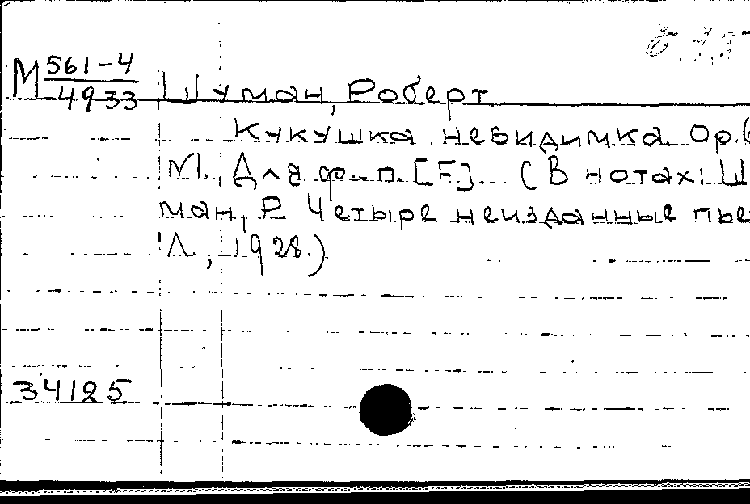 М 561-4
4933
Шуман, Роберт
Кукушка невидимка. Op.
М., Для ф.-п. [F]. (В нотах: Ш
ман, Р. Четыре неизданные пье
Л., 1928.)
34125